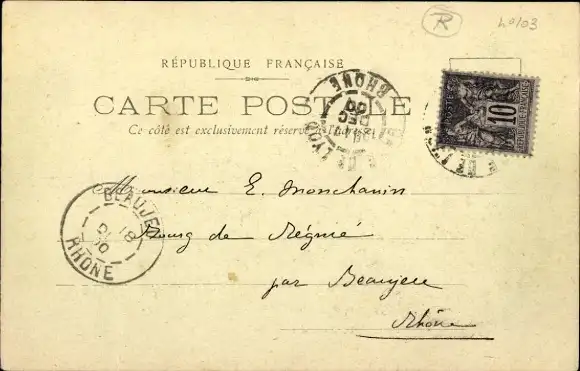 R
RÉPUBLIQUE FRANÇAISE
CARTE POSTALE
Ce côté est exclusivement réservé à l'adresse
10
RHONE
DEC
00
LYON
BEAUJEU
18
00
RHONE
Monsieur E. Monchanin
Bourg de Régnié
par Beaujeu
Rhône